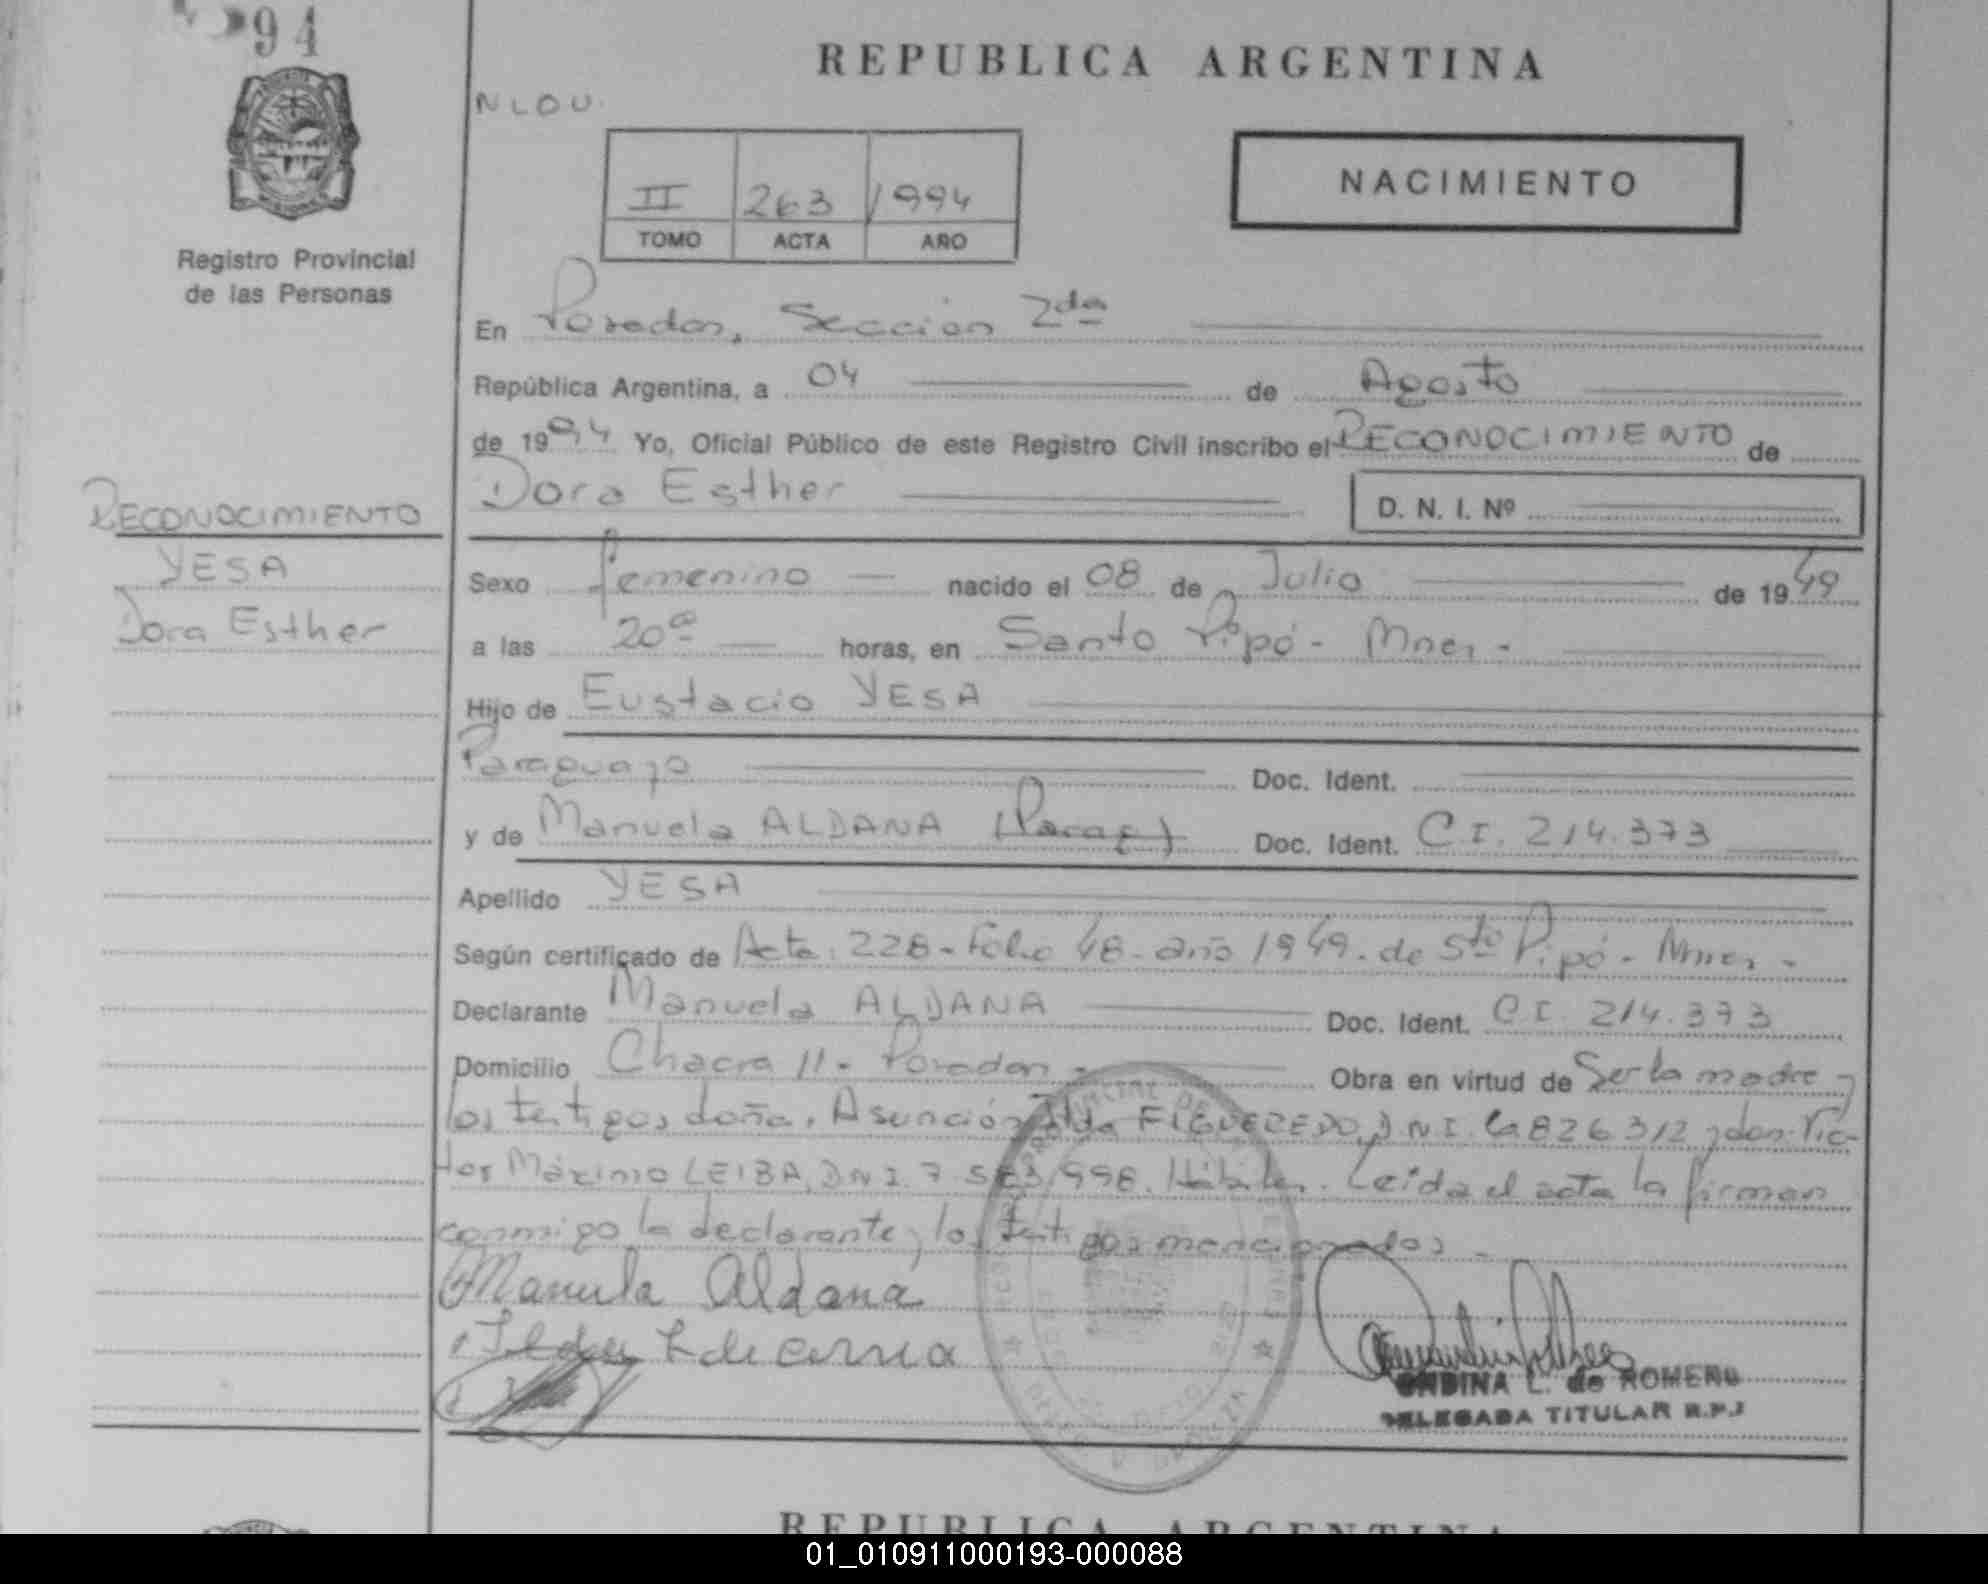 94
REPUBLICA ARGENTINA
NLOU.
II 263 1994
TOMO ACTA AÑO
NACIMIENTO
Registro Provincial
de las Personas
En Posadas, Sección 2da
República Argentina, a 04 de Agosto
de 1994 Yo, Oficial Público de este Registro Civil inscribo el RECONOCIMIENTO de
Dora Esther D. N. I. Nº
RECONOCIMIENTO
YESA
Dora Esther
Sexo femenino nacido el 08 de Julio de 1949
a las 20ª horas, en Santo Pipó - Mnes -
Hijo de Eustacio YESA
Paraguayo Doc. Ident.
y de Manuela ALDANA (Parag) Doc. Ident. C.I. 214.373
Apellido YESA
Según certificado de Acta: 228 - Folio 48 - año 1949. de Sto Pipó - Mnes -
Declarante Manuela ALDANA Doc. Ident. C.I. 214.373
Domicilio Chacra 11 - Posadas - Obra en virtud de Ser la madre y
los testigos doña, Asunción Ilda FIGUEREDO, D.N.I. 826312 y don Víc-
tor Máximo LEIBA, D.N.I. 7.563.998. Hábiles. Leída el acta la firman
conmigo la declarante y los testigos mencionados -
Manuela Aldana
ONDINA L. de ROMERO
DELEGADA TITULAR R.P.J
REPUBLICA ARGENTINA
01_010911000193-000088